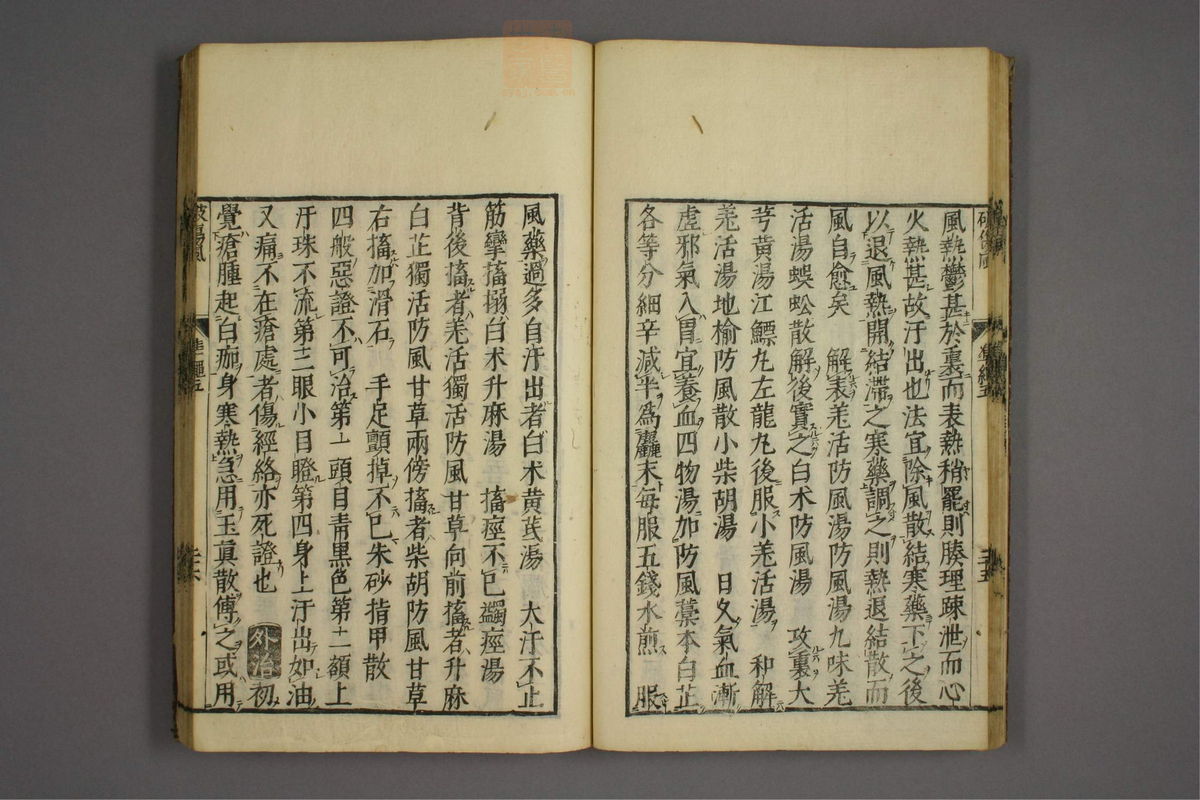 風熱鬱甚於裏而表熱稍罷則腠理疎泄而心
火熱甚故汗出也法宜除風散結寒藥下之後
以退風熱開結滯之寒藥調之則熱退結散而
風自愈矣 解表羌活防風湯防風湯九味羌
活湯蜈蚣散解後實之白术防風湯 攻裏大
芎黄湯江鰾丸左龍丸後服小羌活湯 和解
羌活湯地榆防風散小柴胡湯 日久氣血漸
虚邪氣入胃宜養血四物湯加防風藁本白芷
各等分細辛減半為麤末每服五錢水煎 服
風藥過多自汗出者白术黄芪湯 大汗不止
筋攣搐搦白术升麻湯 搐痙不已蠲痙湯
背後搐者羌活獨活防風甘草向前搐者升麻
白芷獨活防風甘草兩傍搐者柴胡防風甘草
右搐加滑石 手足顫掉不已朱砂指甲散
四般惡證不可治第一頭目青黑色第二額上
汗珠不流第三眼小目瞪第四身上汗出如油
又痛不在瘡處者傷經絡亦死證也 外治 初
覺瘡腫起白痂身寒熱急用玉眞散傅之或用
破傷風 準繩五 三十六